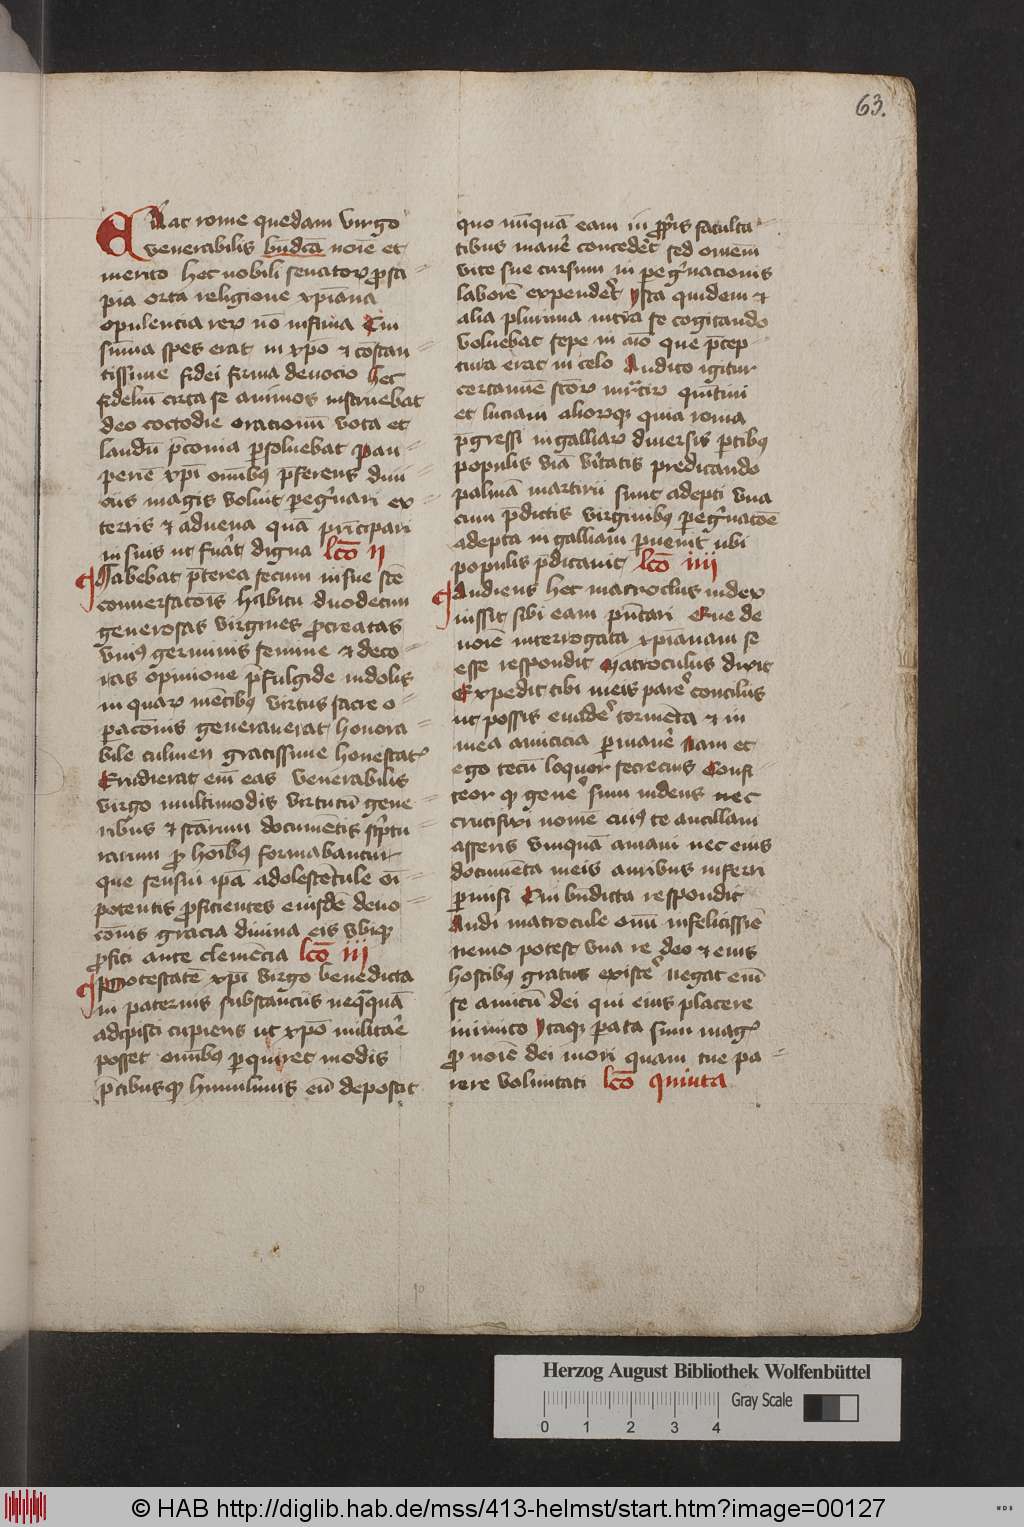 63.
Erat rome quedam virgo
venerabilis bn̄dcā noīe et
merito hec nobili senatoꝝ ꝓsa
pia orta religione xp̄iana
opulencia reꝝ nō infima Cui
sum̄a spes erat in xp̄o ⁊ cōstan
tissime fidei firma deuocio hec
fideliū circa se animos instruebat
deo coctodie oracionū vota et
laudū p̄conia ꝑsoluebat pau
periē xp̄i om̄ibus p̄ferens diui
ciis magis voluit peg̓nari ex
terris ⁊ aduena quā principari
in suis ut fuāt digna lcō ii
Habebat p̄terea secum in sue sc̄e
conuersacōis habitu duodecim
generosas virgines ꝓcreatas
vniꝰ germinis semine ⁊ deco
ras opinione p̄fulgide indolis
in quaꝝ mētibꝫ virtus sacre o
ꝑacōnis generauerat honora
bile culmen gratissime honestat̓
Erudierat em̄ eas venerabilis
virgo multimodis virtutū gene
ribus ⁊ sc̄arum documētis sc̓ptu
rarum ꝓ hoībꝫ formabantur
que sensui ip̄a adolescētule oī
potentis ꝓficientes eiusdē deuo
cōnis gracia diuina eis vbiqꝫ
ꝓsiti ante clemēcia lcō iii
Potestatē xp̄i virgo benedicta
in paternis substanciis neqꝫquā
adipisci cupiens ut xp̄o militar̄e
posset om̄ibus ꝑquiret modis
p̄cibusqꝫ humilimis eū deposcit
quo nūquā eam in ꝓp̓is faculta
tibus maner̄e concederet sed omem̄
vite sue cursum in peg̓nacionis
laborē expenderet ysta quidem ⁊
alia plurima intra se cogitando
voluebat sepe in aīo que p̄cep
tura erat in celo Audito igitur
certamīe sc̄oꝝ mr̄tirꝝ quītini
et luciani alioꝝqꝫ quia roma
ꝑgressi in galliaꝝ diuersis ꝑtibꝫ
populis viā v̓itatis predicando
palmā martirii sunt adepti vna
cum p̄dictis virginibꝫ peg̓nacōe
adepta in galliam ꝑuenit ubi
populis p̄dicauit lcō iiii
Audiens hec matroclus iudex
iussit sibi eam p̄ntari Que de
noīe interrogata xpianam se
esse respondit Matroculus dixit
Expedit tibi meis parer̄e conciliis
ut possis euader̄e tormēta ⁊ in
mea amicicia ꝑmaner̄e Nam et
ego tecū loquor secrecius Confi
teor qꝫ gener̄e sum iudeus nec
crucifixi nomē cuiꝰ te ancillam
asseris vmquā amaui nec eius
documēta meis auribus inferri
ꝑmisi Cui bn̄dicta respondit
Audi matrocule om̄i infelicissiē
nemo potest vna re deo ⁊ eius
hostibꝫ gratus exister̄e negat em̄
se amicū dei qui eius placere
inimico ytaqꝫ pata sum mag̓
ꝓ noīe dei mori quam tue pa
rere voluntati lcō quinta
Herzog August Bibliothek Wolfenbüttel
Gray Scale
0 1 2 3 4
© HAB http://diglib.hab.de/mss/413-helmst/start.htm?image=00127